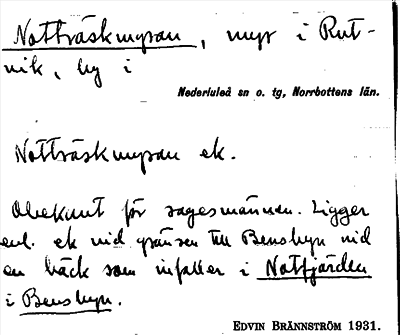 Notträskmyran, myr i Rut-
vik, by i
Nederluleå sn o. tg, Norrbottens län.
Notträskmyran ek.
Obekant för sagesmannen. Ligger
enl. ek vid gränsen till Bensbyn vid
en bäck som infaller i Notfjärden
i Bensbyn.
EDVIN BRÄNNSTRÖM 1931.